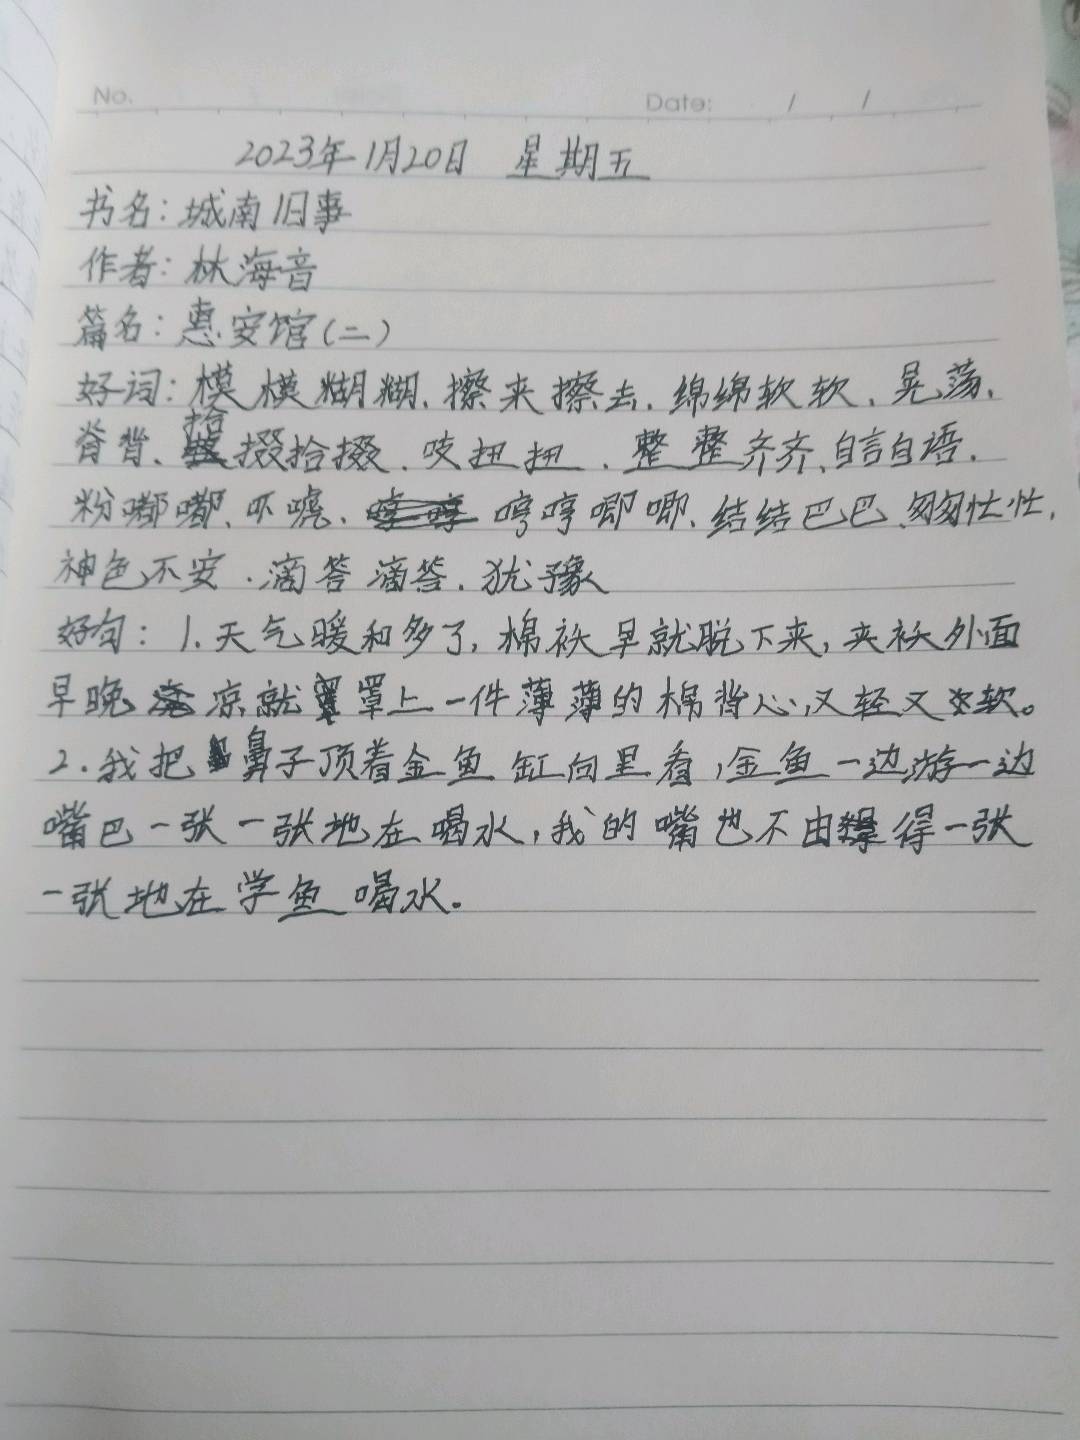 No. Date: / /
2023年1月20日 星期五
书名：城南旧事
作者：林海音
篇名：惠安馆（二）
好词：模模糊糊、擦来擦去、绵绵软软、晃荡、
脊背、拾掇拾掇、吱扭扭、整整齐齐、自言自语、
粉嘟嘟、吓唬、哼哼唧唧、结结巴巴、匆匆忙忙、
神色不安、滴答滴答、犹豫
好句：1.天气暖和多了，棉袄早就脱下来，夹袄外面
早晚凉就罩上一件薄薄的棉背心，又轻又软。
2.我把鼻子顶着金鱼缸向里看，金鱼一边游一边
嘴巴一张一张地在喝水，我的嘴也不由得一张
一张地在学鱼喝水。